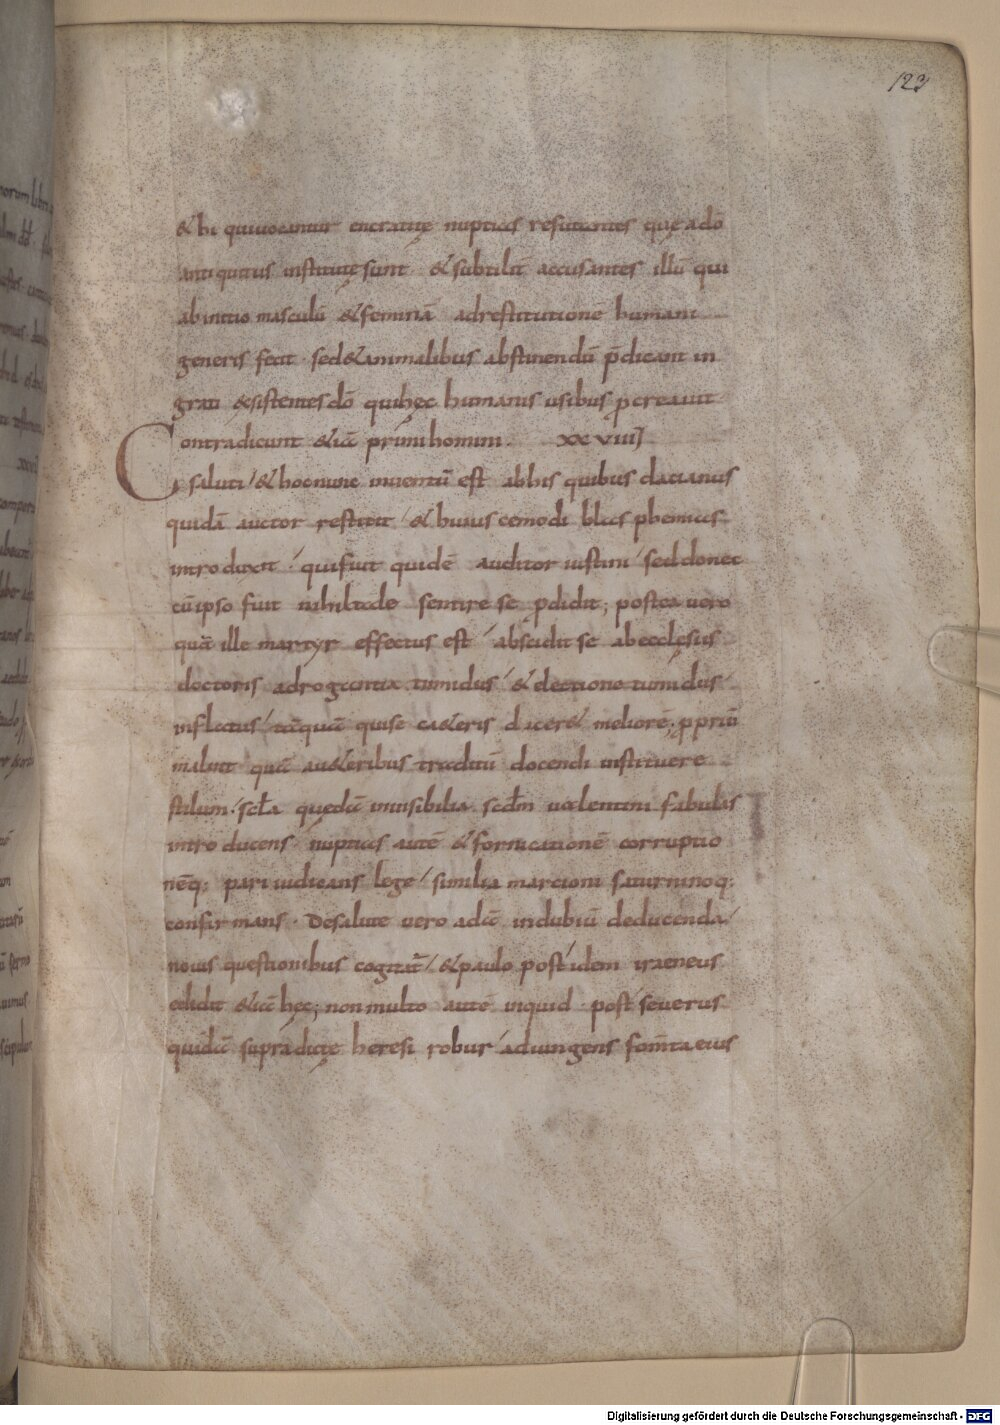 123
& hi qui uocantur encratitę nuptias refutantes quę a dō
antiquitus institutę sunt · & subtilit̄ accusantes illū qui
ab initio masculū & feminā ad restitutionē humani
generis fecit · sed & animalibus abstinendū p̄dicant in
grati existentes dō qui hęc humanis usibus procreauit
Contradicunt &iā primi homini xxviiij
saluti / & hoc nunc inuentū est ab his quibus datianus
quidā auctor restitit / & huiuscemodi blasphemias
introduxit / qui fuit quidē auditor iustini / sed donec
cū ipso fuit nihil tale sentire se p̄didit ; postea uero
quā ille martyr effectus est / abscidit se ab ecclęsiis
doctoris adrogantia tumidus / & elactione tumidus /
inflatus / tāquā qui se ca&eris dicer& meliorē ; ppriū
maluit quā au&eribus traditū docendi instituere
stilum / scła quędā inuisibilia scd̄m ualentini fabulas
introducens · nuptias autē & fornicationē corruptio
nēq; pari iudicans lege / similia marcioni saturninoq;
confirmans · De salute uero adā in dubiū deducenda /
nouis questionibus cogitat̄ / & paulo post idem iraeneus
edidit &iā hęc ; non multo autē inquid post seuerus
quidā supradictę heresi robur adiungens fom̄ta eius
Digitalisierung gefördert durch die Deutsche Forschungsgemeinschaft - DFG